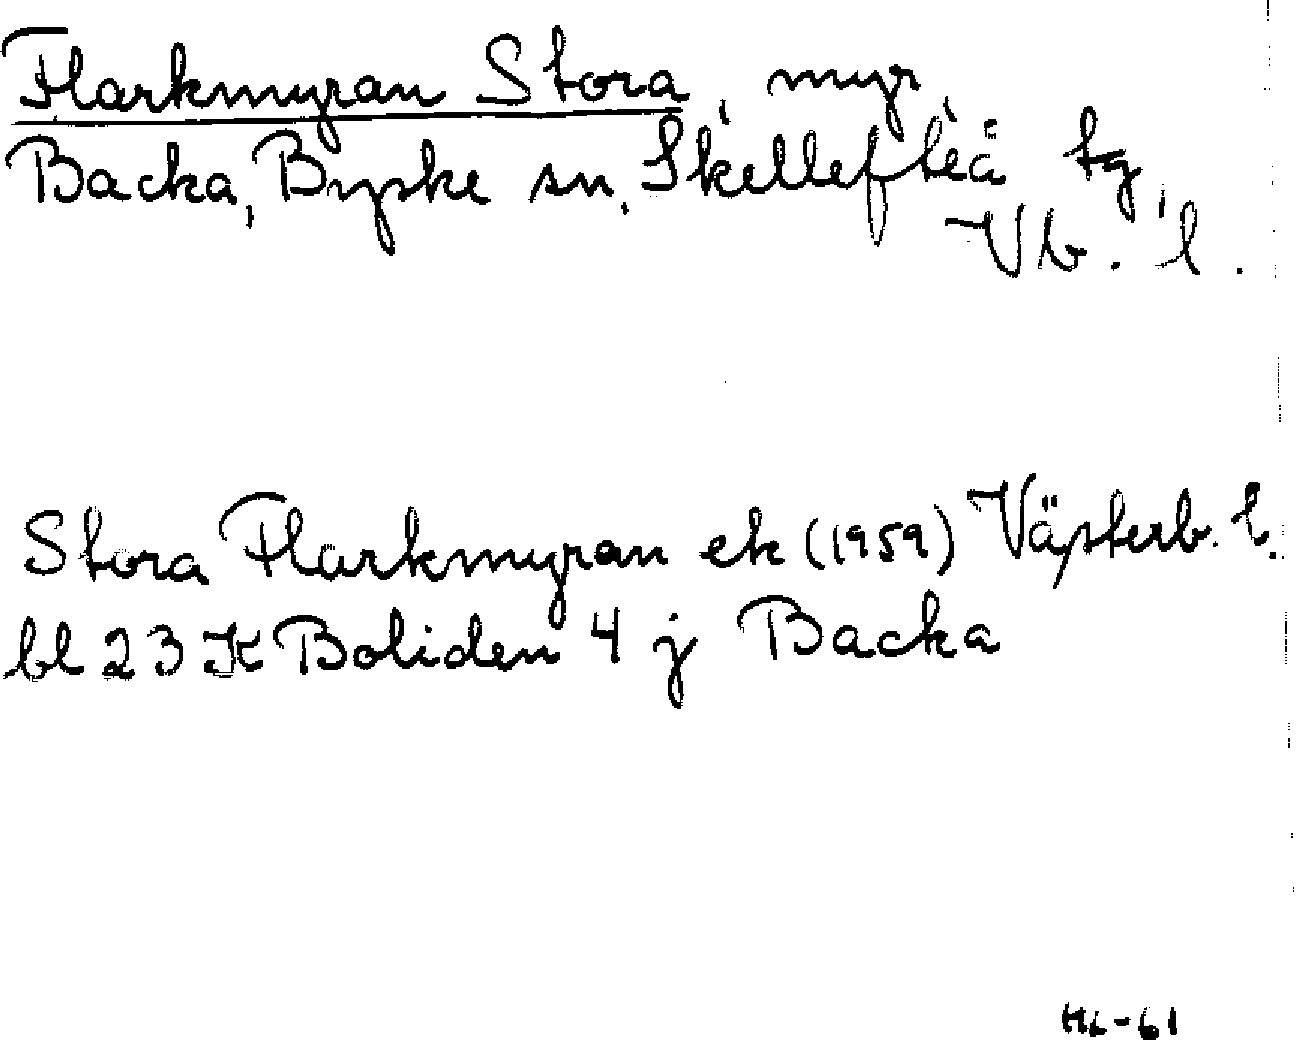 Flarkmyran Stora, myr,
Backa, Byske sn, Skellefteå tg,
Vb. l.
Stora Flarkmyran ek (1959) Västerb. l.
bl 23 K Boliden 4 j Backa
HL-61